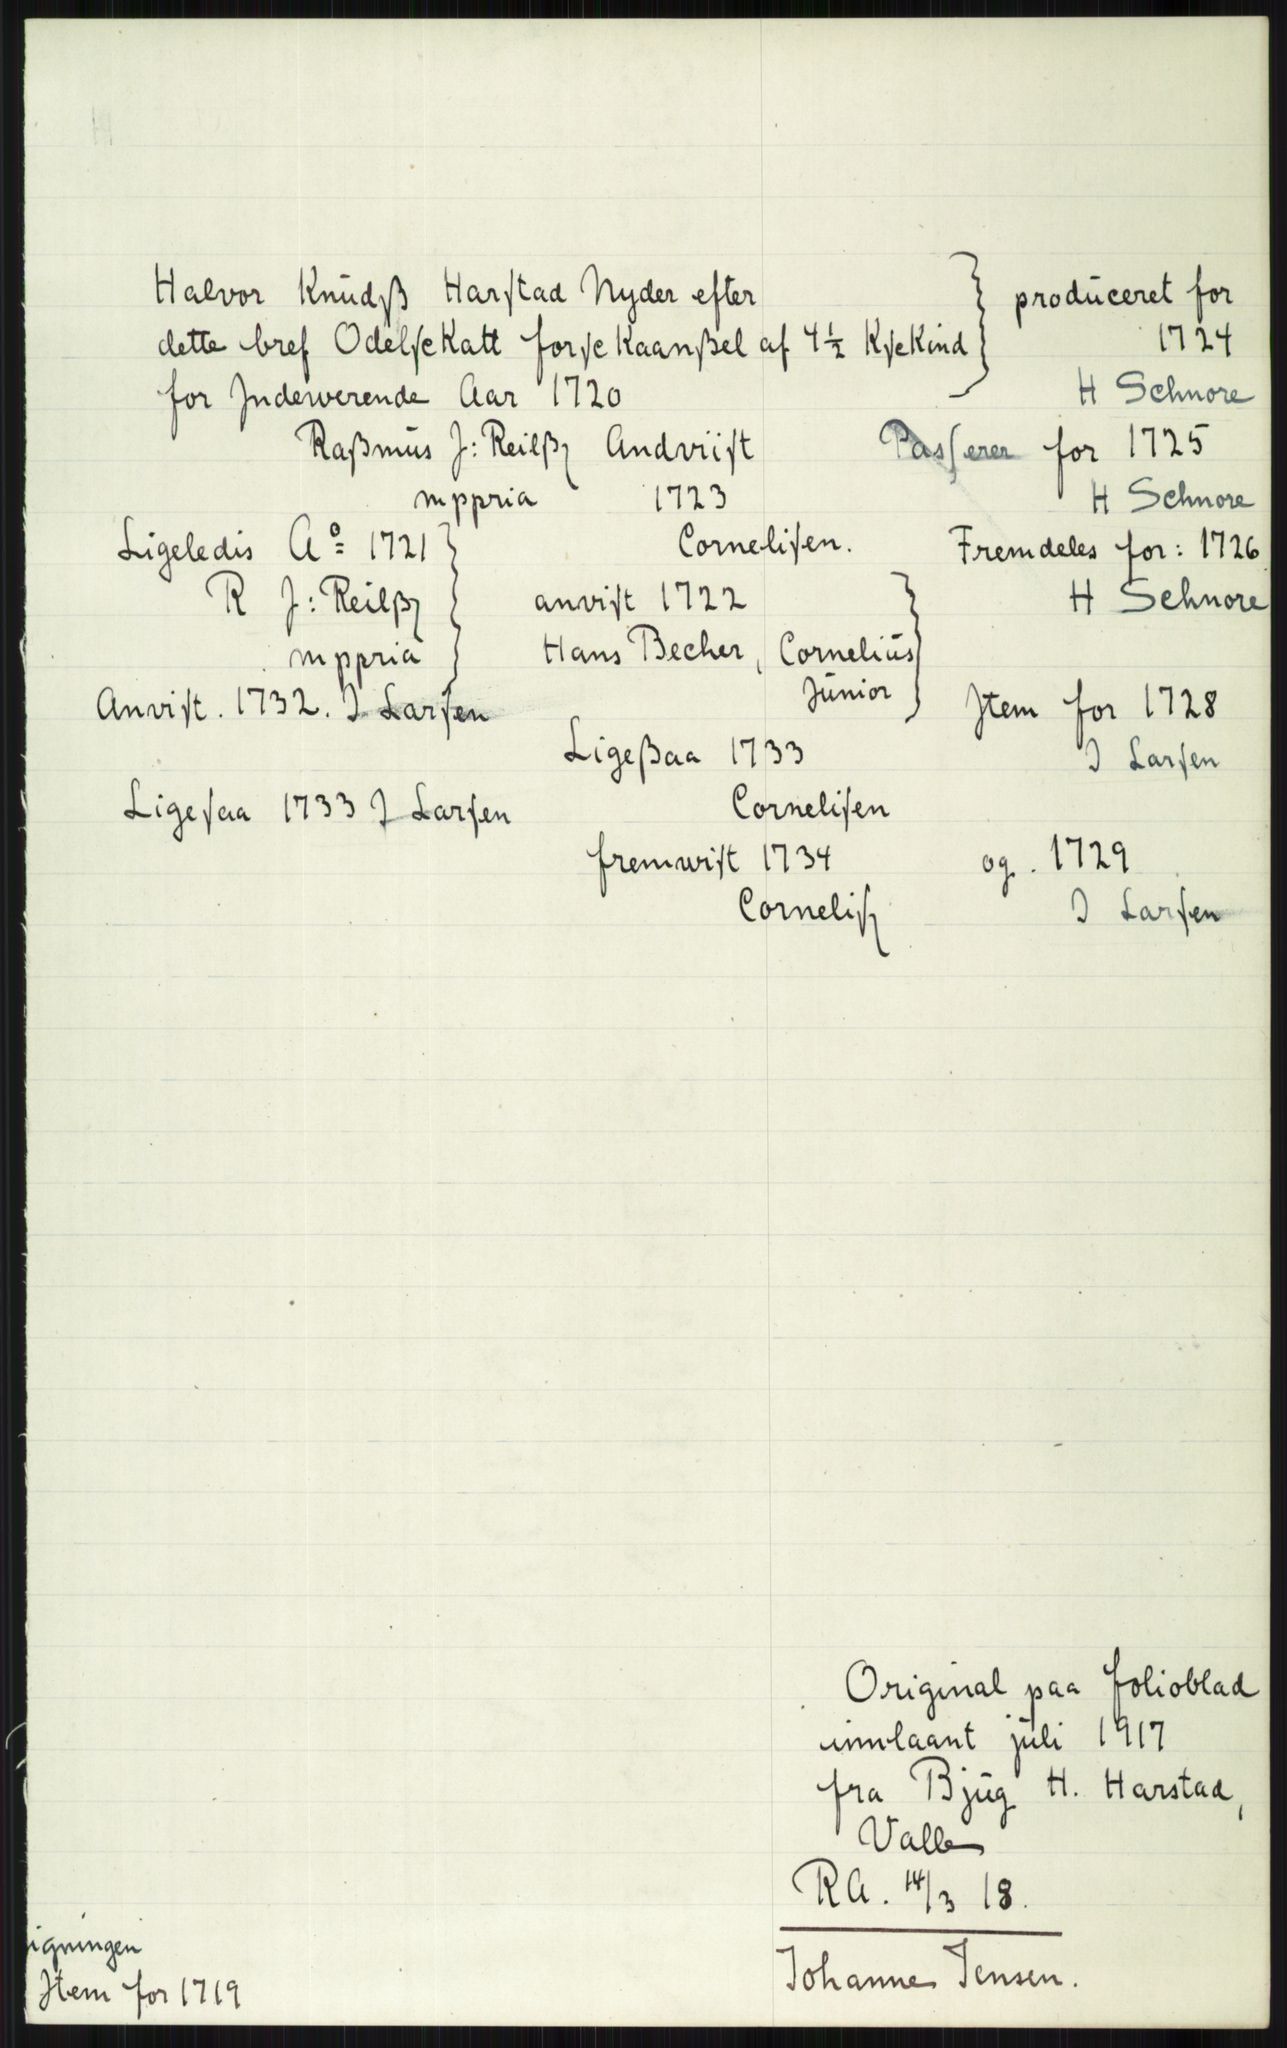 Halvor Knudß Harstad Nyder efter
dette bref Odelsckatt forsckaanßel af 4½ Ksckind
for Indewerende Aar 1720
Raßmus J: Reilß Andviist
mppria 1723
Cornelisen.
Ligeledis A° 1721
R J: Reilß
mppria
anvist 1722
Hans Becher, Cornelius
Junior
Anvist. 1732. I Larsen
Ligeßaa 1733
Cornelisen
Ligesaa 1733 I Larsen
fremwist 1734
Cornelis
produceret for
1724
H Schnore
Passerer for 1725
H Schnore
Fremdeles for: 1726
H Schnore
Item for 1728
I Larsen
og. 1729
I Larsen
Original paa folioblad
innlaant juli 1917
fra Bjug H. Harstad,
Valle
RA. 14/3 18.
Johanne Jensen.
igningen
Item for 1719